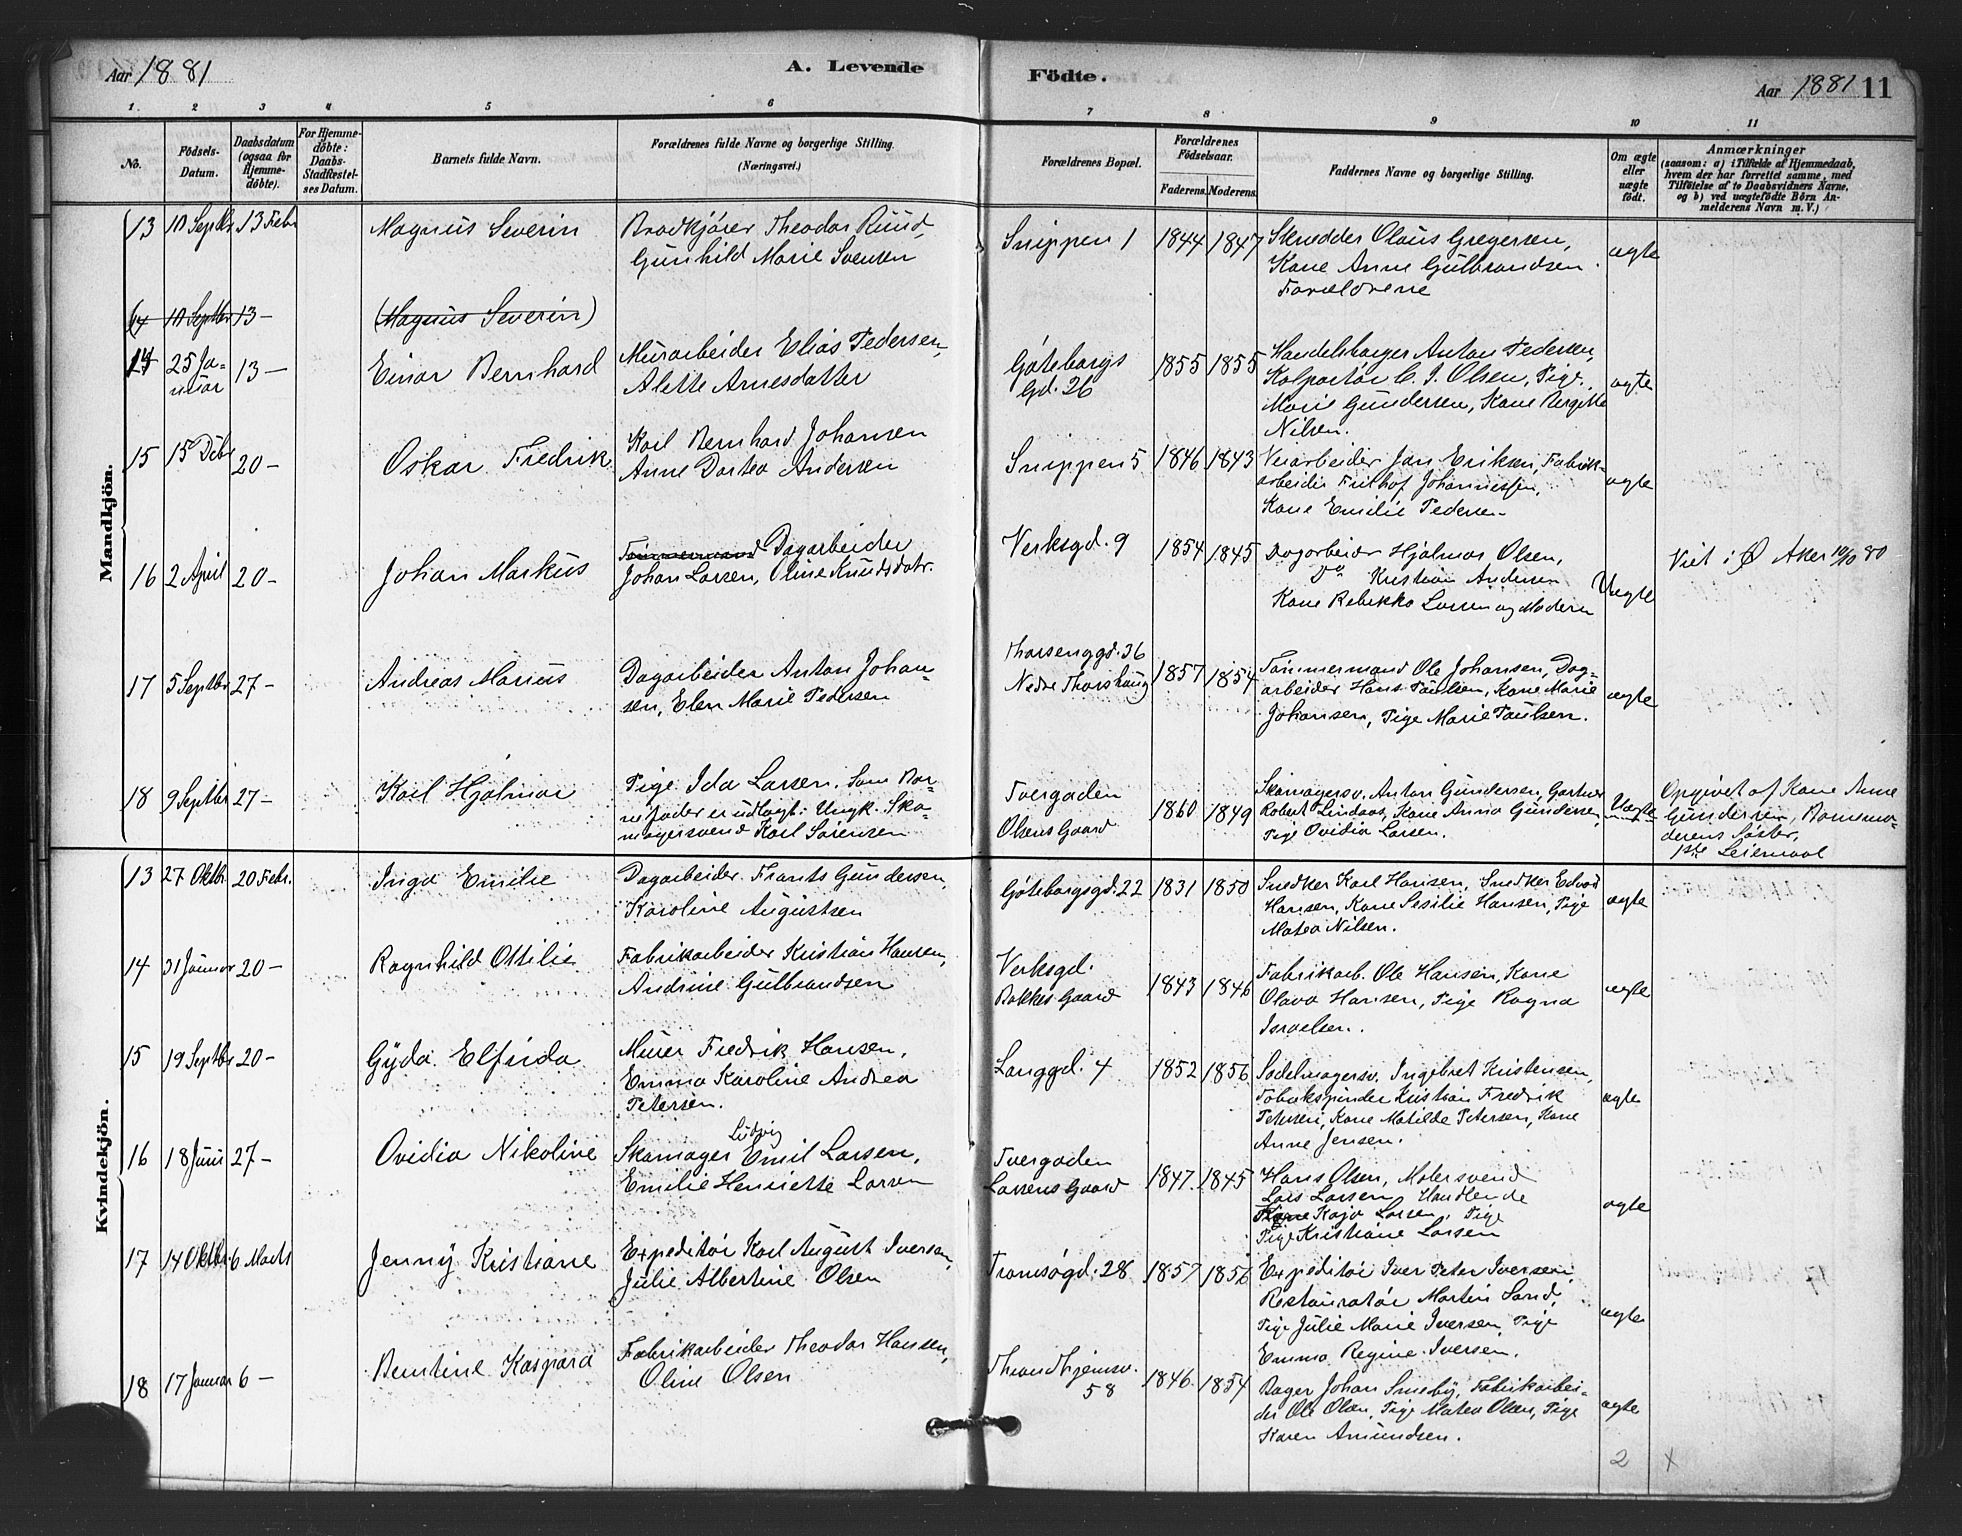 Aar 1881
A. Levende
Födte.
Aar 1881 11
1. 2 3 4 5 6 7 8 9 10 11
No.
Födsels-
Datum.
Daabsdatum
(ogsaa for
Hjemme-
döbte).
For Hjemme-
döbte:
Daabs-
Stadfæstel-
ses Datum.
Barnets fulde Navn.
Forældrenes fulde Navne og borgerlige Stilling.
(Næringsvei.)
Forældrenes Bopæl.
Forældrenes
Födselsaar.
Faderens. Moderens.
Faddernes Navne og borgerlige Stilling.
Om ægte
eller
uægte
født.
Anmærkninger
(saasom: a) i Tilfælde af Hjemmedaab,
hvem der har forrettet samme, med
Tilföielse af to Daabsvidners Navne,
og b) ved uægtefödte Börn An-
melderens Navn m. V.)
Mandkjön.
13 10 Septbr 13 Febr
Magnus Severin
Brødkjører Theodor Ruud,
Gunhild Marie Svensen
Snippen 1
1844 1847
Skredder Olaus Gregersen,
Kone Anne Gulbrandsen.
Forældrene
ægte
14 10 Septbr 13 –
(Magnus Severin)
14 25 Ja-
nuar
13 –
Einar Bernhard
Murarbeider Elias Pedersen,
Alette Arnesdatter
Göteborgs
Gd. 26
1855 1855
Handelsborger Anton Pedersen,
Kolportör C. J. Olsen, Pige
Marie Gundersen, Kone Bergitte
Nilsen.
ægte
15 15 Dcbr 20 –
Oskar Fredrik
Karl Bernhard Johansen
Anne Dortea Andersen
Snippen 5
1846 1843
Veiarbeider Jan Eriksen, Fabrik-
arbeider Frithof Johannessen,
Kone Emilie Pedersen
ægte
16 2 April 20 –
Johan Markus
Tömmermand Dagarbeider
Johan Larsen, Oline Knudsdatr.
Verksgd. 9
1854 1845
Dagarbeider Hjalmar Olsen,
Do Kristian Andersen
Kone Rebekka Larsen og Moderen
Uægte
Viet i Ø Aker 10/10 80
17 5 Septbr 27 –
Andreas Marius
Dagarbeider Anton Johan-
sen, Elen Marie Pedersen
Thorsenggd. 36
Nedre Thorshaug
1857 1854
Tömmermand Ole Johansen, Dag-
arbeider Hans Paulsen, Kone Marie
Johansen, Pige Marie Paulsen.
ægte
18 9 Septbr 27 –
Karl Hjalmar
Pige Ida Larsen. Som Bar-
nefader er udlagt: Ungk. Sko-
magersvend Karl Sörensen
Tvergaden
Olsens Gaard
1860 1849
Skomagersv. Anton Gundersen, Gartner
Robert Lindaas, Kone Anna Gundersen,
Pige Ovidia Larsen.
Uægte
Opgivet af Kone Anne
Gundersen, Barnemo-
derens Söster,
1ste Leiermaal
Kvindekjön.
13 27 Oktbr. 20 Febr.
Inga Emilie
Dagarbeider Frants Gundersen,
Karoline Augustsen
Göteborgsgd. 22
1831 1850
Snedker Karl Hansen, Snedker Edvard
Hansen, Kone Sesilie Hansen, Pige
Matea Nilsen.
ægte
14 31 Januar 20 –
Ragnhild Ottilie
Fabrikarbeider Kristian Hansen,
Andrine Gulbrandsen
Verksgd.
Bakkes Gaard
1843 1846
Fabrikarb. Ole Hansen, Kone
Olava Hansen, Pige Ragna
Israelsen.
ægte
15 19 Septbr 20 –
Gyda Elfrida
Murer Fredrik Hansen,
Emma Karoline Andrea
Petersen.
Langgd. 4
1852 1856
Sadelmagersv. Ingebret Kristensen,
Fabrikspinder Kristian Fredrik
Petersen, Kone Matilde Petersen, Kone
Anne Jensen.
ægte
16 18 Juni 27 –
Ovidia Nikoline
Ludvig
Skomager Emil Larsen,
Emilie Henriette Larsen
Tvergaden
Larsens Gaard
1847. 1845
Hans Olsen, Malersvend
Lars Larsen, Handlende
Kaja Larsen, Pige
Pige Kristiane Larsen
ægte
17 14 Oktbr 6 Marts
Jenny Kristiane
Expeditör Karl August Iversen,
Julie Albertine Olsen
Tromsögd. 28
1857 1856
Expeditör Iver Peter Iversen,
Restauratör Martin Sand,
Pige Julie Marie Iversen, Pige
Emma Regine Iversen.
ægte
18 17 Januar 6 –
Berntine Kaspara
Fabrikarbeider Theodor Hansen,
Oline Olsen
Throndhjemsv.
58
1846. 1854
Bager Johan Smeby, Fabrikarbei-
der Ole Olsen, Pige Matea Olsen, Pige
Karen Amundsen.
ægte
2 x